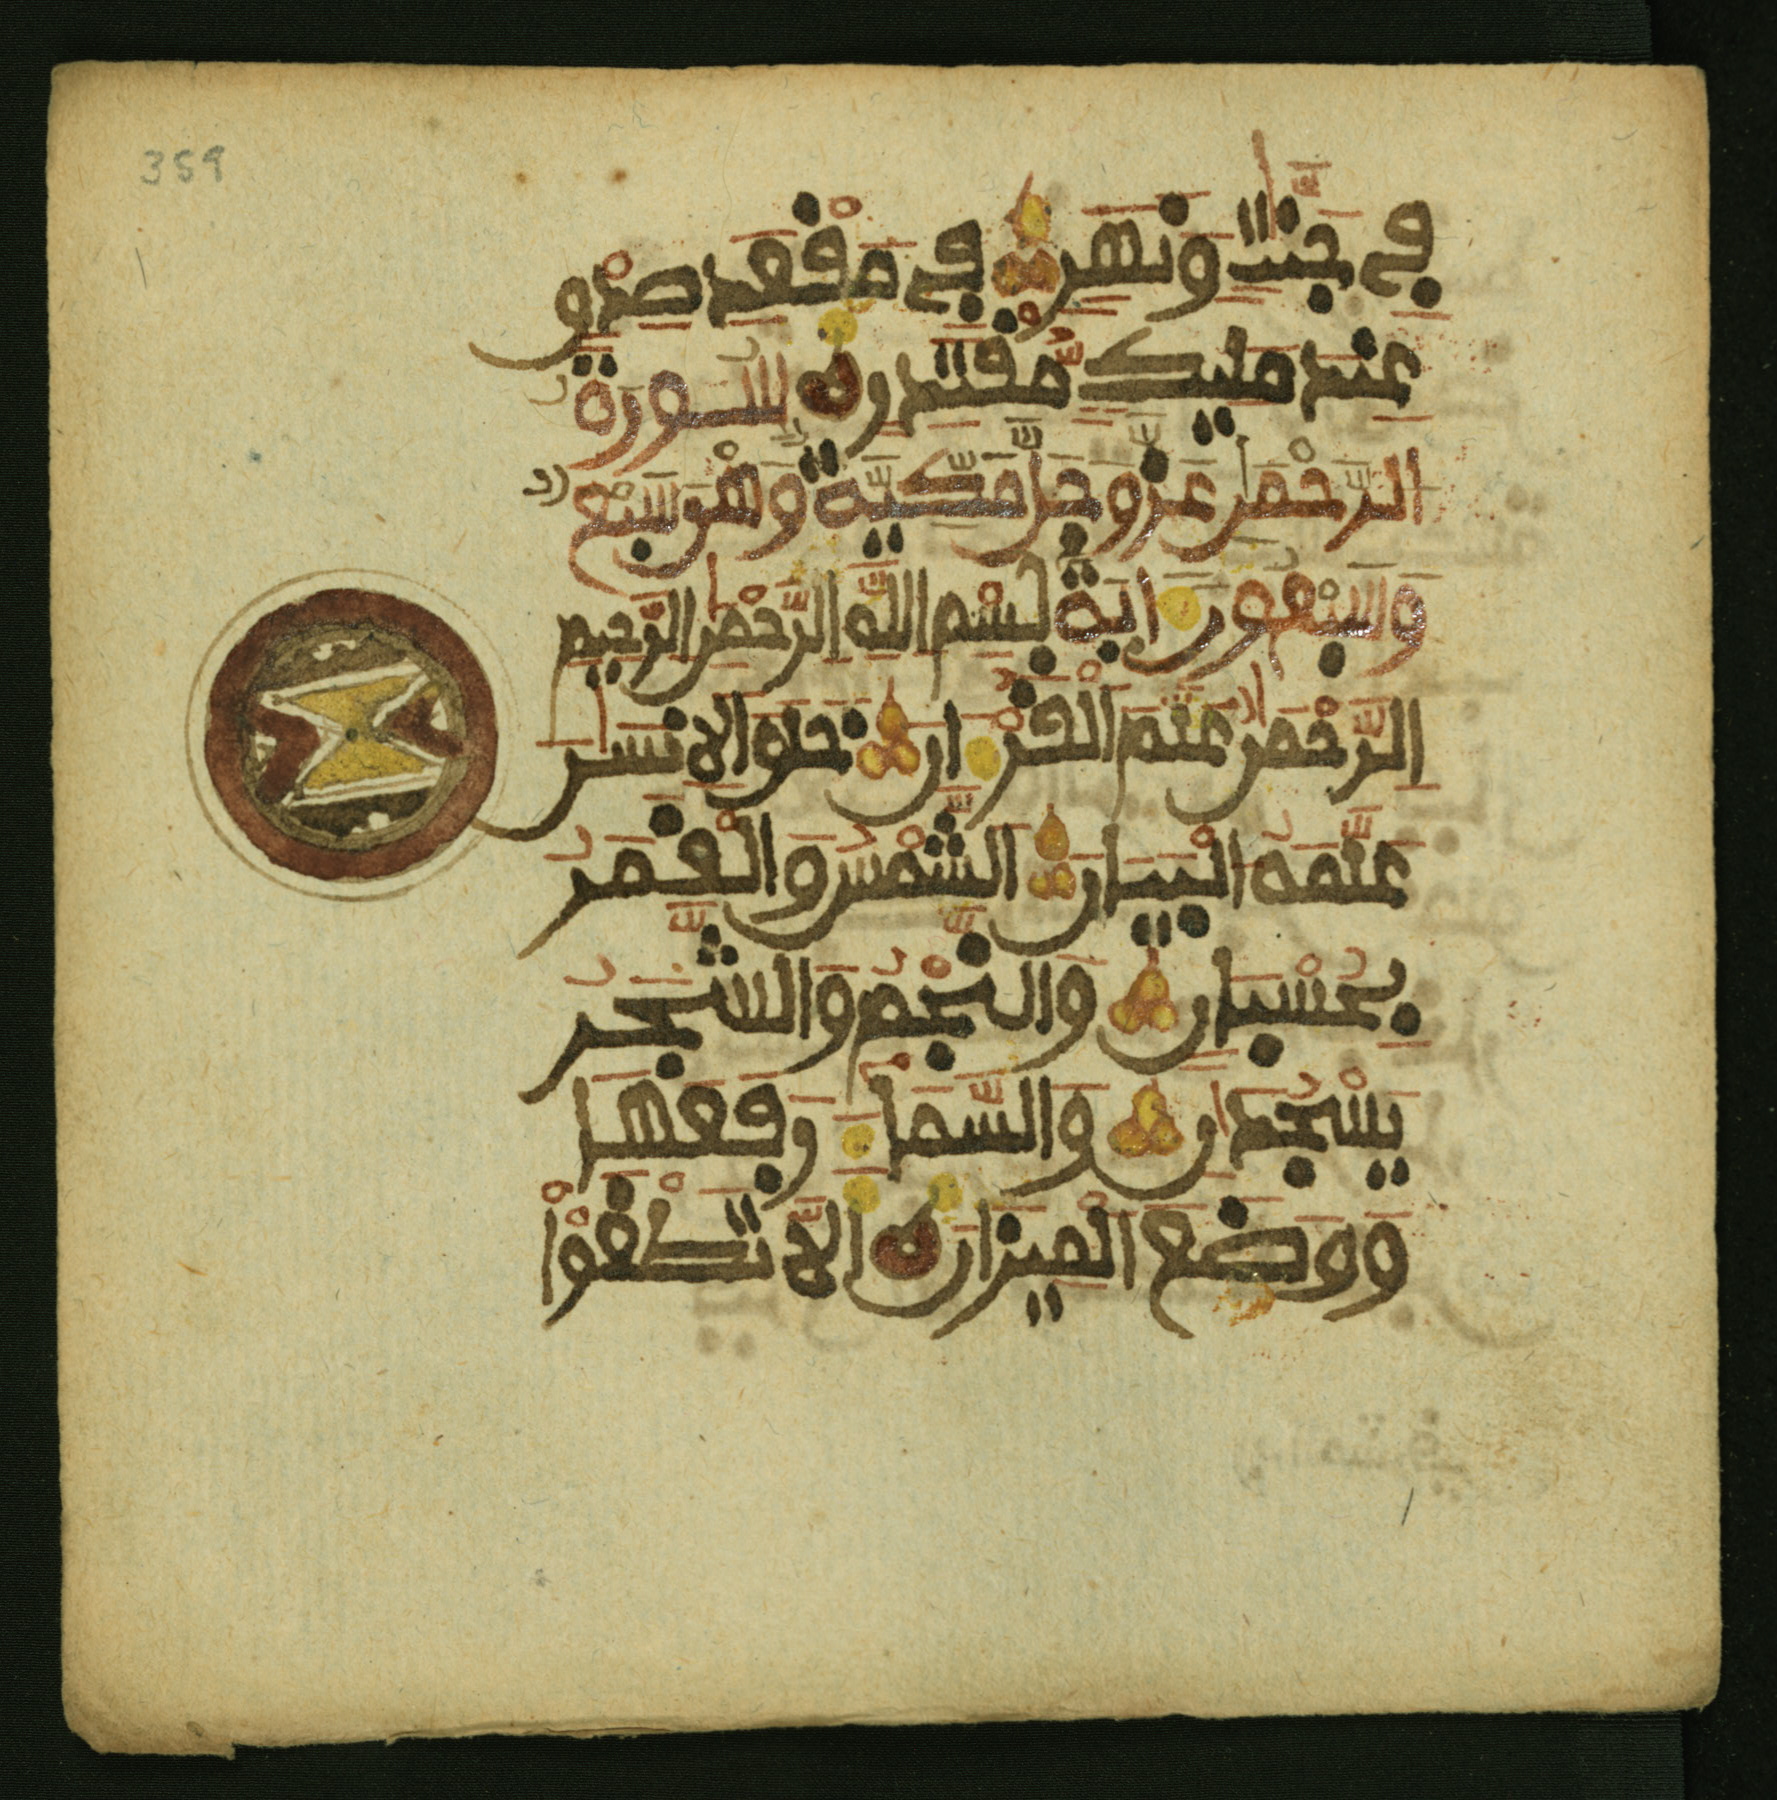 359
في جنت ونهر في مقعد صدق
عند مليك مقتدر سورة
الرحمن عز وجل مكية وهو سبع
والسبعون اية بسم الله الرحمن الرحيم
الرحمن علم القران خلق الانسن
علمه البيان الشمس والقمر
بحسبان والنجم والشجر
يسجدان والسما رفعها
ووضع الميزان الا تطغوا